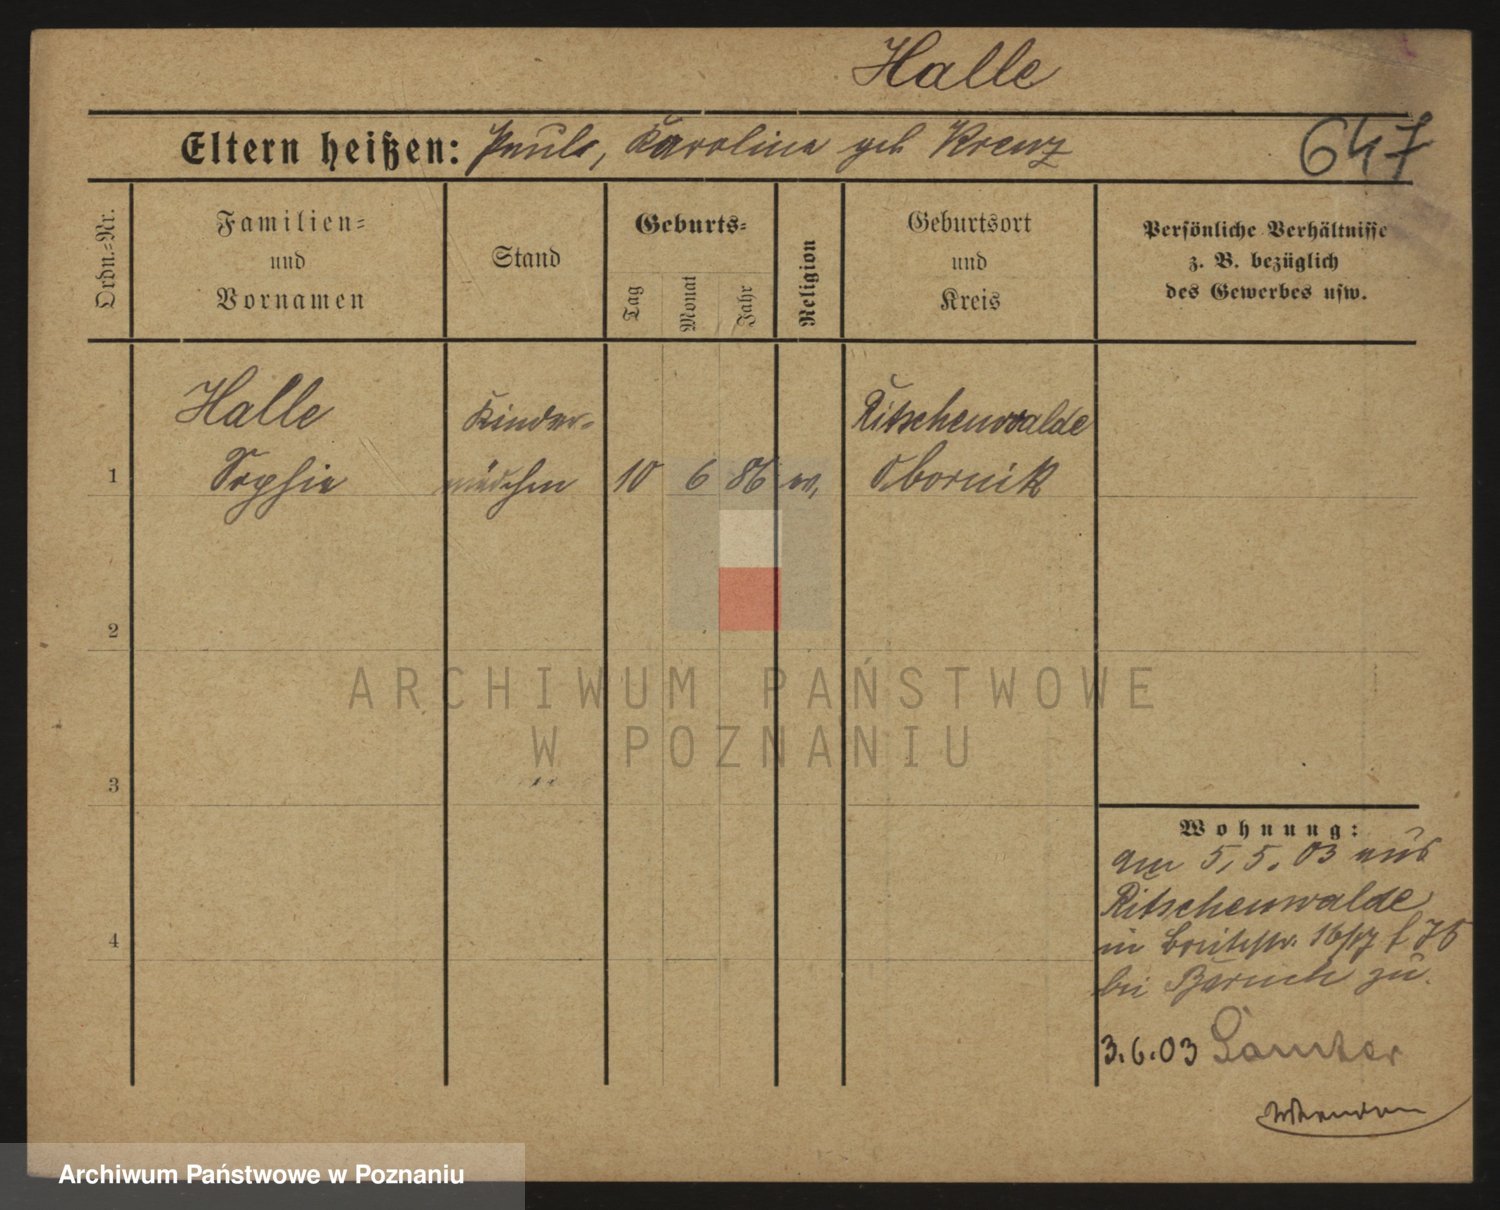 Halle
Eltern heißen: Paul, Karoline geb Krenz
647
Ordn.-Nr.
Familien-
und
Vornamen
Stand
Geburts-
Tag
Monat
Jahr
Religion
Geburtsort
und
Kreis
Persönliche Verhältnisse
z. B. bezüglich
des Gewerbes usw.
1
Halle
Sophie
Kinder-
mädchen
10
6
86
Ritschenwalde
Obornik
2
3
4
Wohnung:
am 5,5.03 aus
Ritschenwalde
in Breitestr. 16/17
bei Baruch zu.
3.6.03 Samter
ARCHIWUM PAŃSTWOWE
W POZNANIU
Archiwum Państwowe w Poznaniu